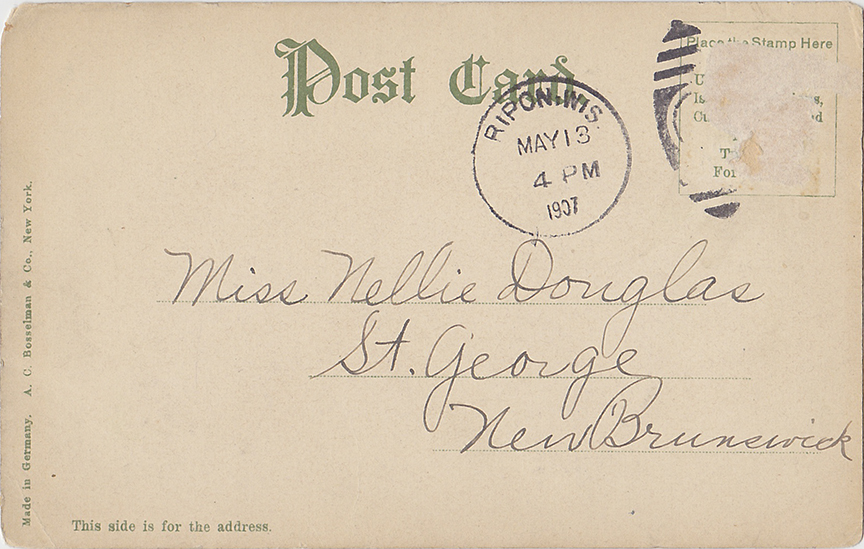 Post Card
Place the Stamp Here
RIPON. WIS.
MAY 13
4 PM
1907
Miss Nellie Douglas
St. George
New Brunswick
This side is for the address.
Made in Germany. A. C. Bosselman & Co., New York.